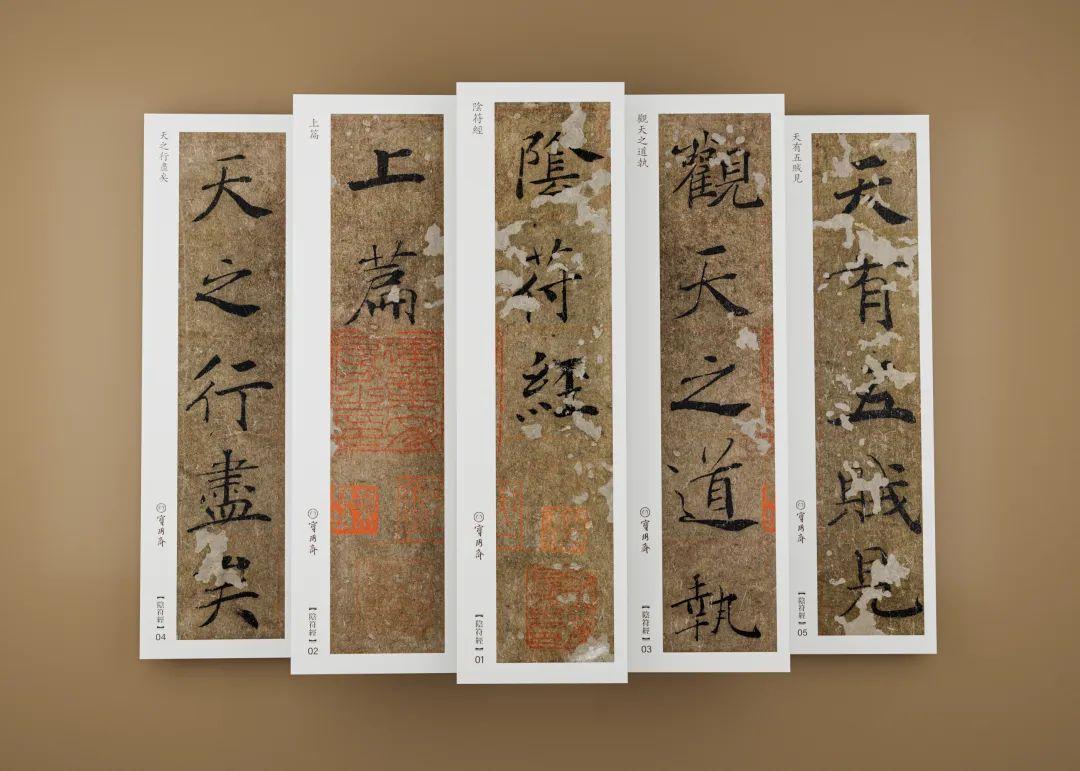 天之行盡矣
天之行盡矣
寶玥齋
【陰符經】04
上篇
上篇
寶玥齋
【陰符經】02
陰符經
陰符經
寶玥齋
【陰符經】01
觀天之道執
觀天之道執
寶玥齋
【陰符經】03
天有五賊見
天有五賊見
寶玥齋
【陰符經】05